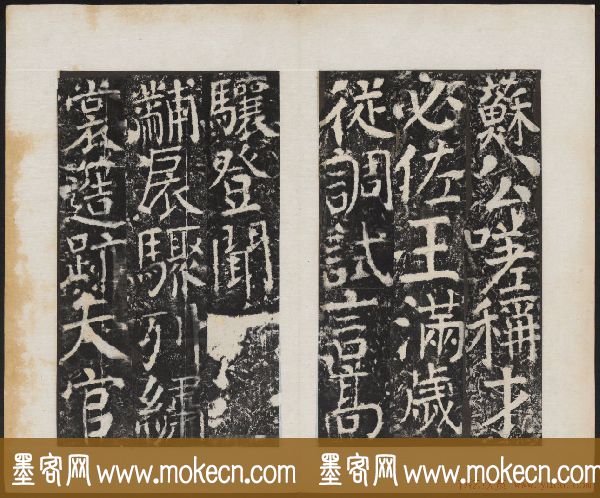 蘇公嗟稱才
必佐王滿歲
從調試言高
驤登聞
黼扆驟列繡
裳造跡天官
墨客网 www.mokecn.com 墨客网 www.mokecn.com